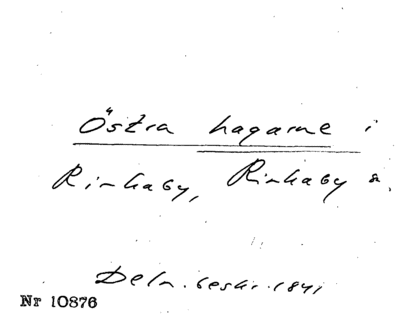 Östra hagarne i
Rinkaby, Rinkaby s.
Deln.beskr.1841
Nr 10876